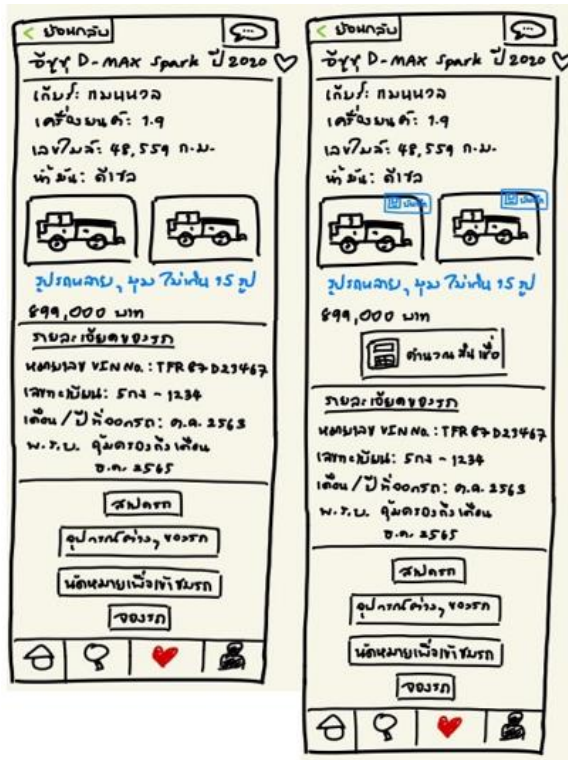 < ย้อนกลับ
อีซูซุ D-MAX Spark ปี 2020
เกียร์: แมนนวล
เครื่องยนต์: 1.9
เลขไมล์: 48,559 ก.ม.
น้ำมัน: ดีเซล
รูปรถหลายๆ มุม ไม่เกิน 15 รูป
899,000 บาท
รายละเอียดของรถ
หมายเลข VIN No. : TFR87D23467
เลขทะเบียน: 5กง - 1234
เดือน / ปี ที่ออกรถ: ต.ค. 2563
พ.ร.บ. คุ้มครองถึงเดือน
ธ.ค. 2565
สเปครถ
อุปกรณ์ต่างๆ ของรถ
นัดหมายเพื่อเข้าชมรถ
จองรถ
< ย้อนกลับ
อีซูซุ D-MAX Spark ปี 2020
เกียร์: แมนนวล
เครื่องยนต์: 1.9
เลขไมล์: 48,559 ก.ม.
น้ำมัน: ดีเซล
บันทึก
บันทึก
รูปรถหลายๆ มุม ไม่เกิน 15 รูป
899,000 บาท
คำนวณสินเชื่อ
รายละเอียดของรถ
หมายเลข VIN No. : TFR87D23467
เลขทะเบียน: 5กง - 1234
เดือน / ปี ที่ออกรถ: ต.ค. 2563
พ.ร.บ. คุ้มครองถึงเดือน
ธ.ค. 2565
สเปครถ
อุปกรณ์ต่างๆ ของรถ
นัดหมายเพื่อเข้าชมรถ
จองรถ